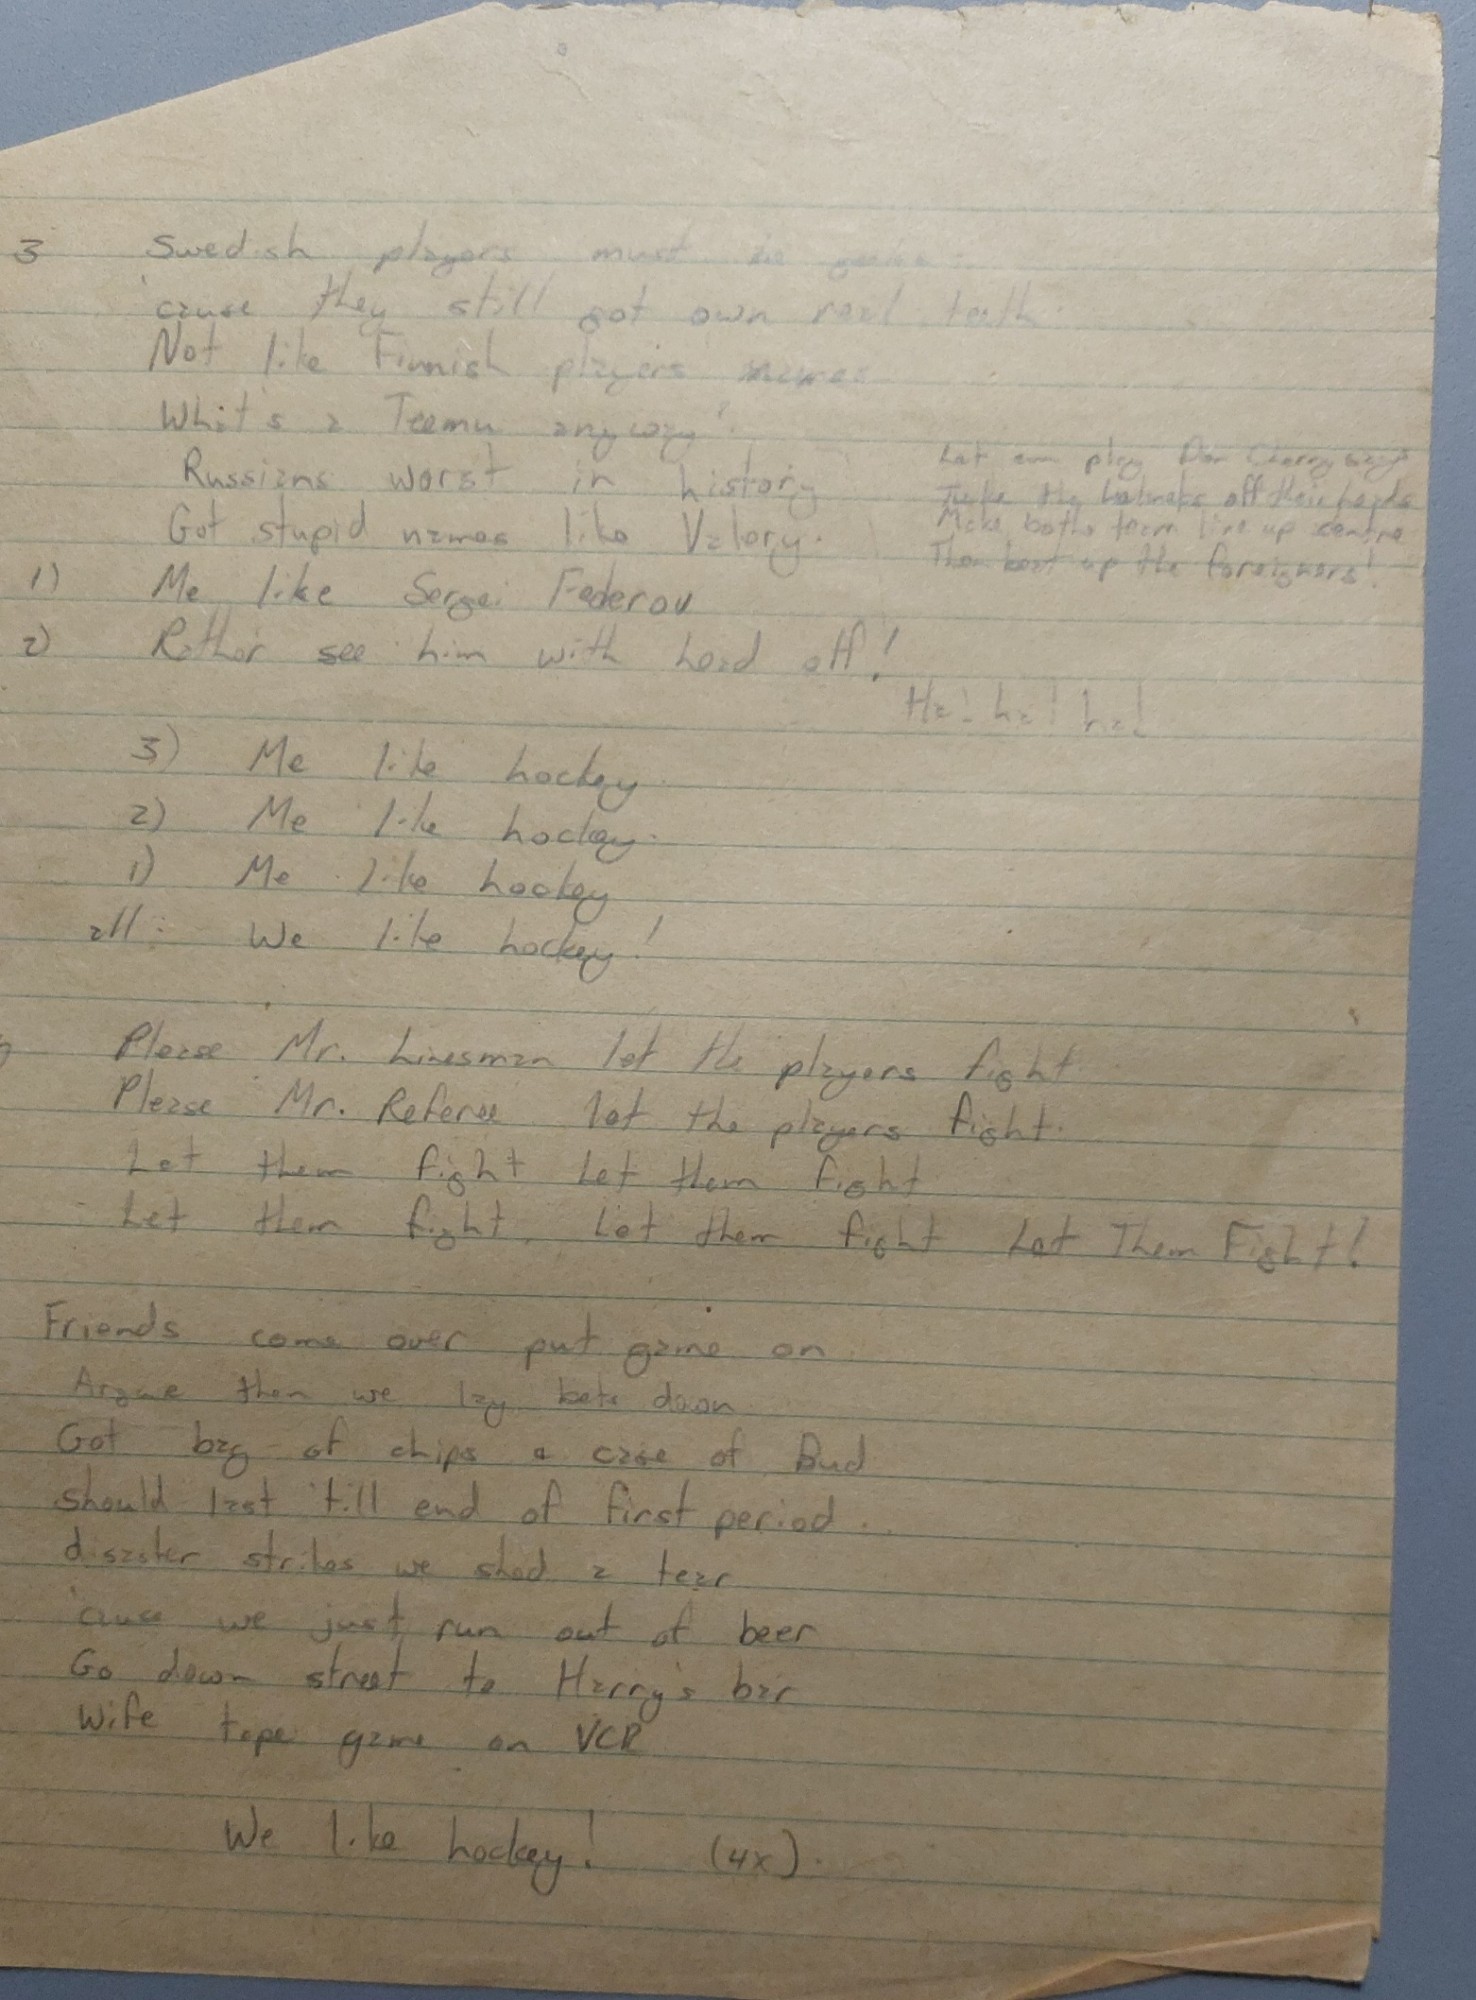 3 Swedish players must be
'cause they still got own real teeth.
Not like Finnish players names
What's a Teemu anyway?
Russians worst in history
Got stupid names like Valery.
Let em play Don Cherry says
Take the helmets off their heads
Make both team line up centre
Then beat up the foreigners!
1) Me like Sergei Federov
2) Rather see him with head off!
Ha! ha! ha!
3) Me like hockey.
2) Me like hockey.
1) Me like hockey
all: We like hockey!
Please Mr. Linesman let the players fight.
Please Mr. Referee let the players fight.
Let them fight Let them fight
Let them fight, Let them fight Let Them Fight!
Friends come over put game on
Argue then we lay bets down
Got bag of chips & case of Bud
should last 'till end of first period..
disaster strikes we shed a tear
'cause we just run out of beer
Go down street to Harry's bar
Wife tape game on VCR
We like hockey! (4x).